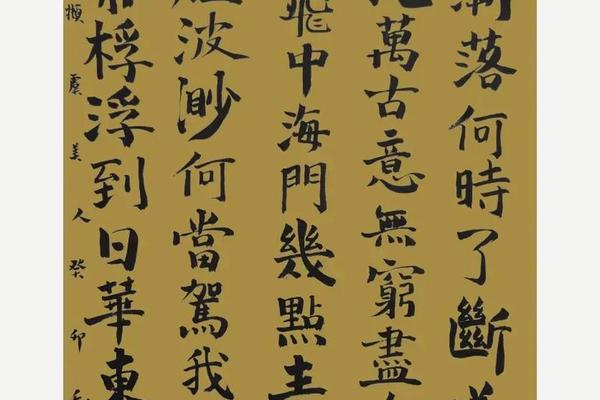 落何時了斷
萬古意無窮盡
飛中海門幾點
波渺何當駕我
桴浮到日華東
虞美人癸卯